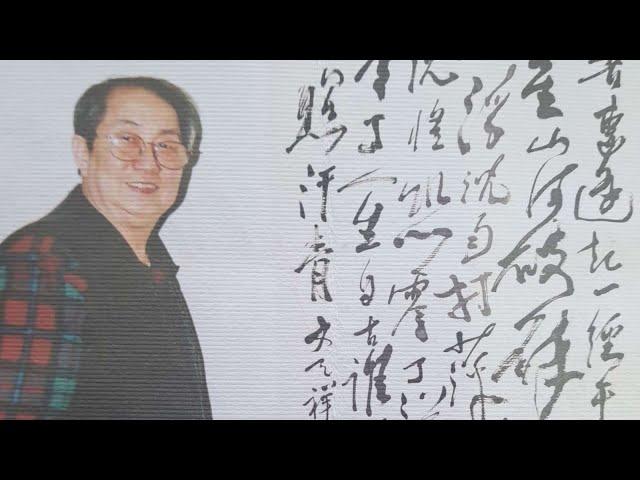 苦遭逢起一經干
星山河破碎
浮沈雨打萍
說惶恐零丁洋
零丁人生自古誰
照汗青 文天祥